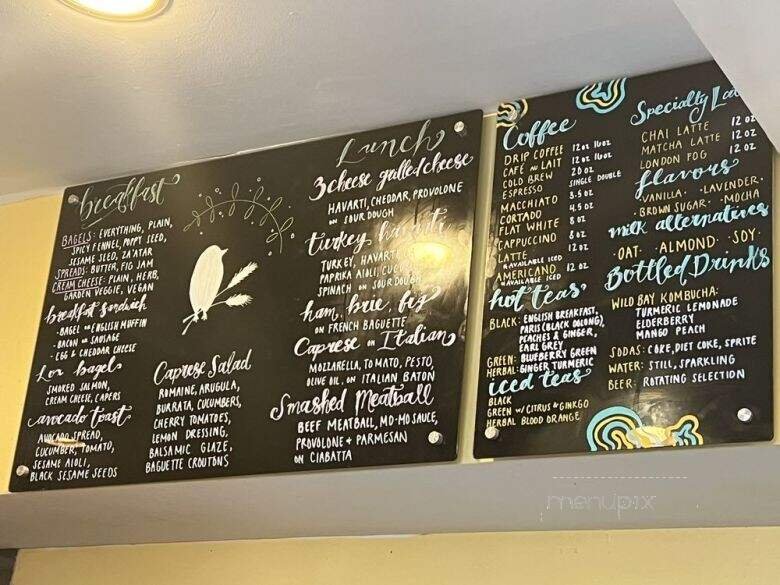 breakfast
BAGELS: EVERYTHING, PLAIN,
SPICY FENNEL, POPPY SEED,
SESAME SEED, ZA'ATAR
SPREADS: BUTTER, FIG JAM
CREAM CHEESE: PLAIN, HERB,
GARDEN VEGGIE, VEGAN
breakfast sandwich
- BAGEL OR ENGLISH MUFFIN
- BACON OR SAUSAGE
- EGG & CHEDDAR CHEESE
Lox bagel
SMOKED SALMON,
CREAM CHEESE, CAPERS
avocado toast
AVOCADO SPREAD,
CUCUMBER, TOMATO,
SESAME AIOLI,
BLACK SESAME SEEDS
Caprese Salad
ROMAINE, ARUGULA,
BURRATA, CUCUMBERS,
CHERRY TOMATOES,
LEMON DRESSING,
BALSAMIC GLAZE,
BAGUETTE CROUTONS
Lunch
3 cheese grilled cheese
HAVARTI, CHEDDAR, PROVOLONE
ON SOUR DOUGH
turkey havarti
TURKEY, HAVARTI
PAPRIKA AIOLI,
SPINACH ON SOUR DOUGH
ham, brie, fig
ON FRENCH BAGUETTE
Caprese on Italian
MOZZARELLA, TOMATO, PESTO,
OLIVE OIL, ON ITALIAN BATON
Smashed Meatball
BEEF MEATBALL, MO-MO SAUCE,
PROVOLONE + PARMESAN
ON CIABATTA
Coffee
DRIP COFFEE 12oz 16oz
CAFÉ AU LAIT 12oz 16oz
COLD BREW 20 oz
ESPRESSO SINGLE DOUBLE
MACCHIATO 3.5 oz
CORTADO 4.5 oz
FLAT WHITE 8 oz
CAPPUCCINO 8 oz
LATTE 12 oz
*AVAILABLE ICED
AMERICANO 12 oz
*AVAILABLE ICED
hot teas
BLACK: ENGLISH BREAKFAST,
PARIS (BLACK OOLONG),
PEACHES & GINGER,
EARL GREY
GREEN: BLUEBERRY GREEN
HERBAL: GINGER TURMERIC
iced teas
BLACK
GREEN W/ CITRUS & GINKGO
HERBAL BLOOD ORANGE
Specialty
CHAI LATTE 12 oz
MATCHA LATTE 12 oz
LONDON FOG 12 oz
flavors
VANILLA · LAVENDER ·
BROWN SUGAR · MOCHA
milk alternatives
· OAT · ALMOND · SOY ·
Bottled Drinks
WILD BAY KOMBUCHA:
TURMERIC LEMONADE
ELDERBERRY
MANGO PEACH
SODAS: COKE, DIET COKE, SPRITE
WATER: STILL, SPARKLING
BEER: ROTATING SELECTION
menupix